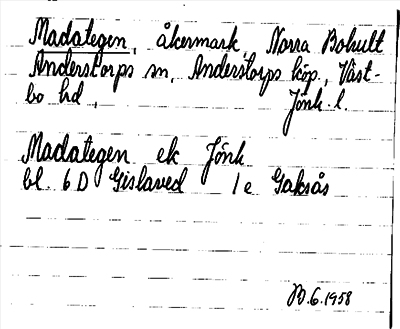 Madategen, åkermark, Norra Bohult
Anderstorps sn, Anderstorps köp., Väst-
bo hd, Jönk. l.
Madategen ek Jönk
bl. 6 D Gislaved 1 e Gaksås
6.1958